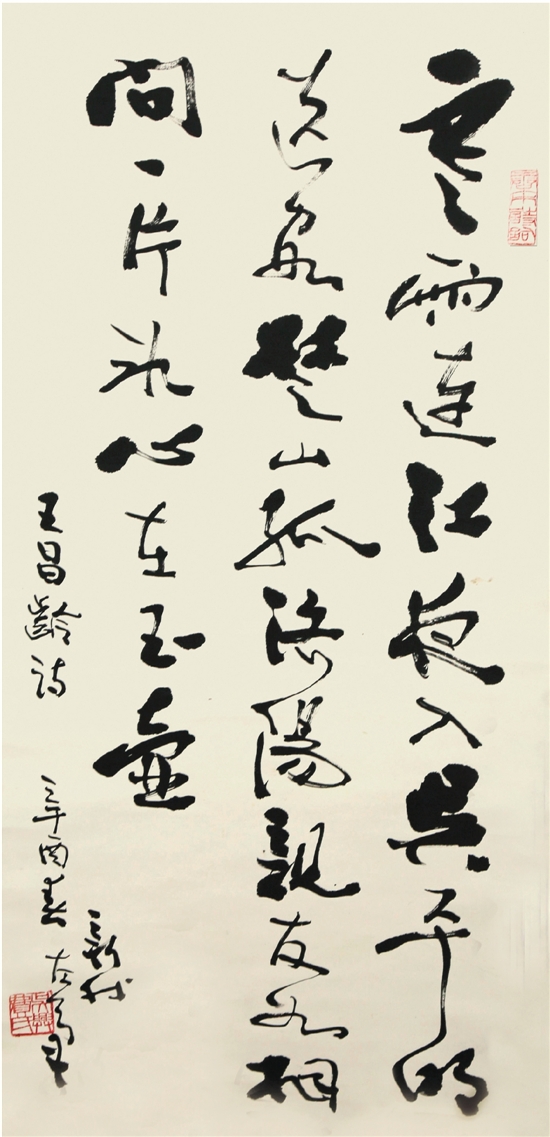 寒雨连江夜入吴平明
送客楚山孤洛陽親友如相
问一片冰心在玉壶
王昌龄诗
辛酉春